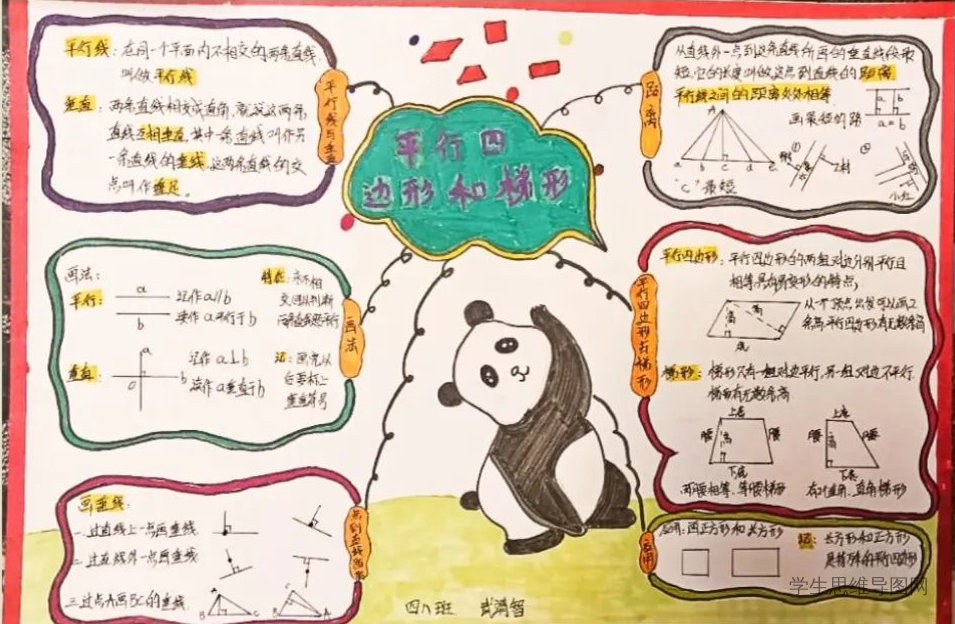 平行四
边形和梯形
平行线与垂直
平行线：在同一个平面内不相交的两条直线
叫做平行线
垂直：两条直线相交成直角，就说这两条
直线互相垂直，其中一条直线叫作另
一条直线的垂线，这两条直线的交
点叫作垂足。
画法
画法：
平行：
a
b
记作 a//b
读作 a平行于b
垂直：
a
b
o
记作 a⊥b
读作 a垂直于b
注：画完以
后要标上
垂直符号
画垂线：
一.过直线上一点画垂线
二.过直线外一点画垂线
三.过点A画BC的垂线
B
C
B
A
距离
从直线外一点到这条直线所画的垂直线段最
短，它的长度叫做这点到直线的距离
平行线之间的距离处处相等
a
b
a=b
画最短的路
A
a
b
c
d
e
"C"最短
①
②
小红
平行四边形与梯形
平行四边形：平行四边形的两组对边分别平行且
相等，具有易变形的特点，
高
高
底
从一个顶点出发可以画2
条高，平行四边形有无数条高
梯形：梯形只有一组对边平行，另一组对边不平行
梯形有无数条高
上底
腰
高
腰
下底
上底
腰
高
腰
下底
两腰相等，等腰梯形
有2个直角，直角梯形
应用
应用：画正方形和长方形
长方形和正方形
是特殊的平行四边形
四八班
学生思维导图网